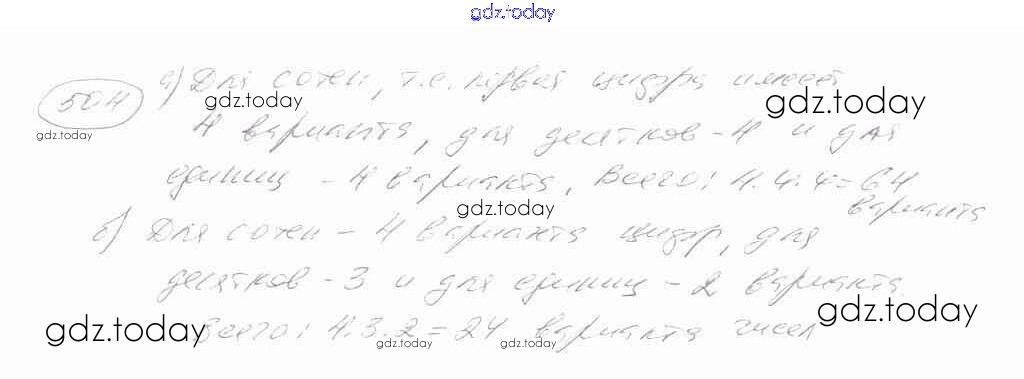 gdz.today
504 а) Для сотен, т.е. первая цифра имеет
gdz.today gdz.today
gdz.today
4 варианта, для десятков - 4 и для
единиц - 4 варианта, Всего: 4.4.4=64
варианта
gdz.today
б) Для сотен - 4 варианта цифр, для
десятков - 3 и для единиц - 2 варианта.
gdz.today
gdz.today Всего: 4.3.2=24 варианта чисел
gdz.today gdz.today